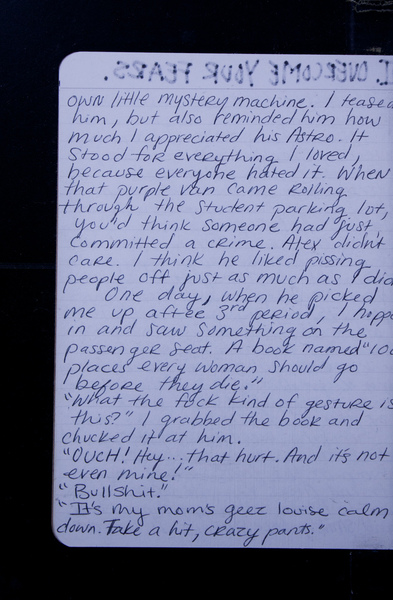 I. OVERCOME YOUR FEARS.
own little mystery machine. I teased
him, but also reminded him how
much I appreciated his Astro. It
stood for everything I loved,
because everyone hated it. When
that purple van came rolling
through the student parking lot,
you'd think someone had just
committed a crime. Alex didn't
care. I think he liked pissing
people off just as much as I did
One day, when he picked
me up after 3rd period, I hopp
in and saw something on the
passenger seat. A book named "10
places every woman should go
before they die."
"What the fuck kind of gesture is
this?" I grabbed the book and
chucked it at him.
"OUCH! Hey... that hurt. And it's not
even mine!"
"Bullshit."
"It's my mom's geez louise calm
down. Take a hit, crazy pants."